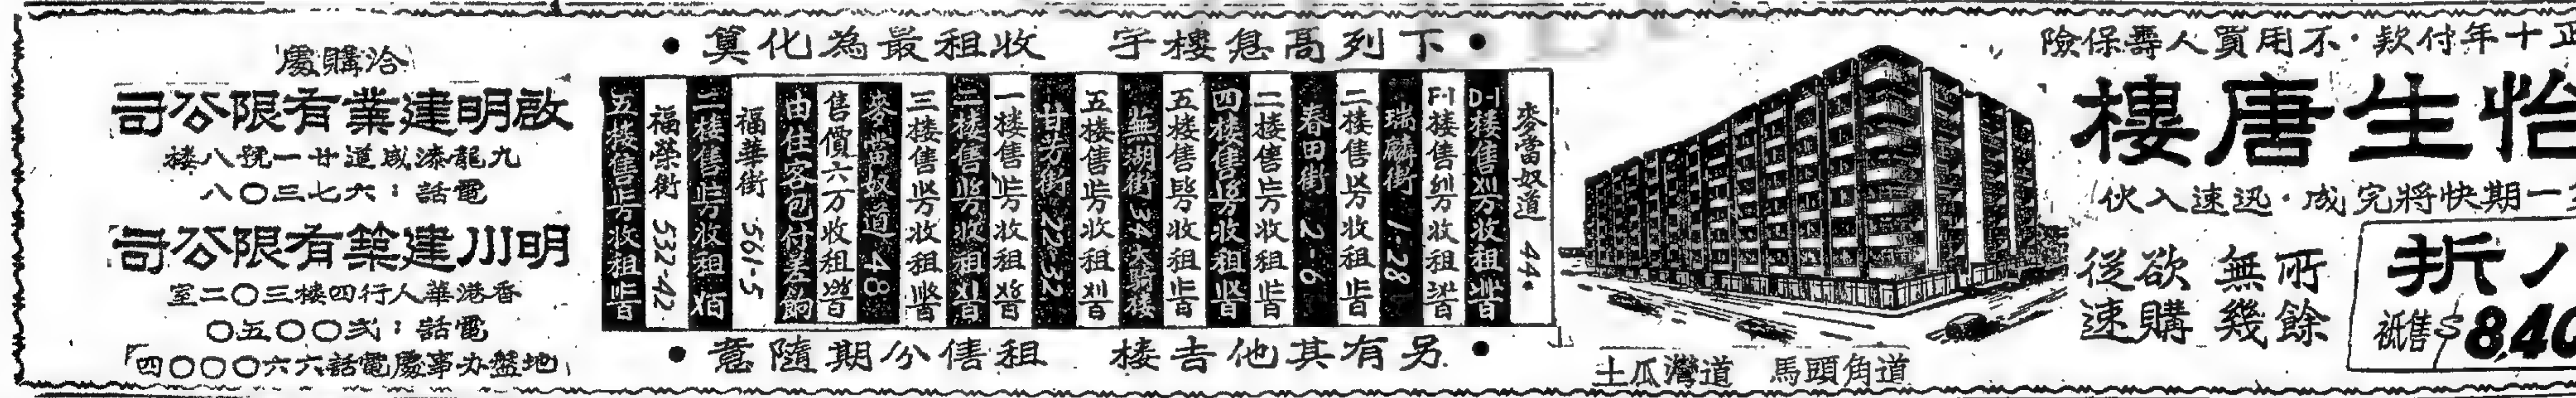 十年付款·不用買人壽保險
怡生唐樓
一期快將完成·迅速入伙
所餘無幾
欲購從速
八折
祇售$8,40
土瓜灣道 馬頭角道
下列高息樓宇 收租最為化算
麥當奴道 44.
D-1楼售 万收租 百
F-1楼售 万收租 百
瑞麟街 1-28
二楼售 万收租 百
春田街 2-6
二楼售 万收租 百
四楼售 万收租 百
五楼售 万收租 百
蕪湖街 34 大騎楼
五楼售 万收租 百
甘芳街 22-32
一楼售 万收租 百
二楼售 万收租 百
三楼售 万收租 百
麥當奴道 48
售價六万收租 百
由住客包付差餉
福華街 561-5
二楼售 万收租 百
福榮街 532-42
五楼售 万收租 百
另有其他吉樓 租售分期隨意
洽購處
啟明建業有限公司
九龍漆咸道廿一號八樓
電話：六七三〇八
明川建築有限公司
香港華人行四樓三〇二室
電話：弍〇〇五〇
地盤办事處電話六六〇〇〇四